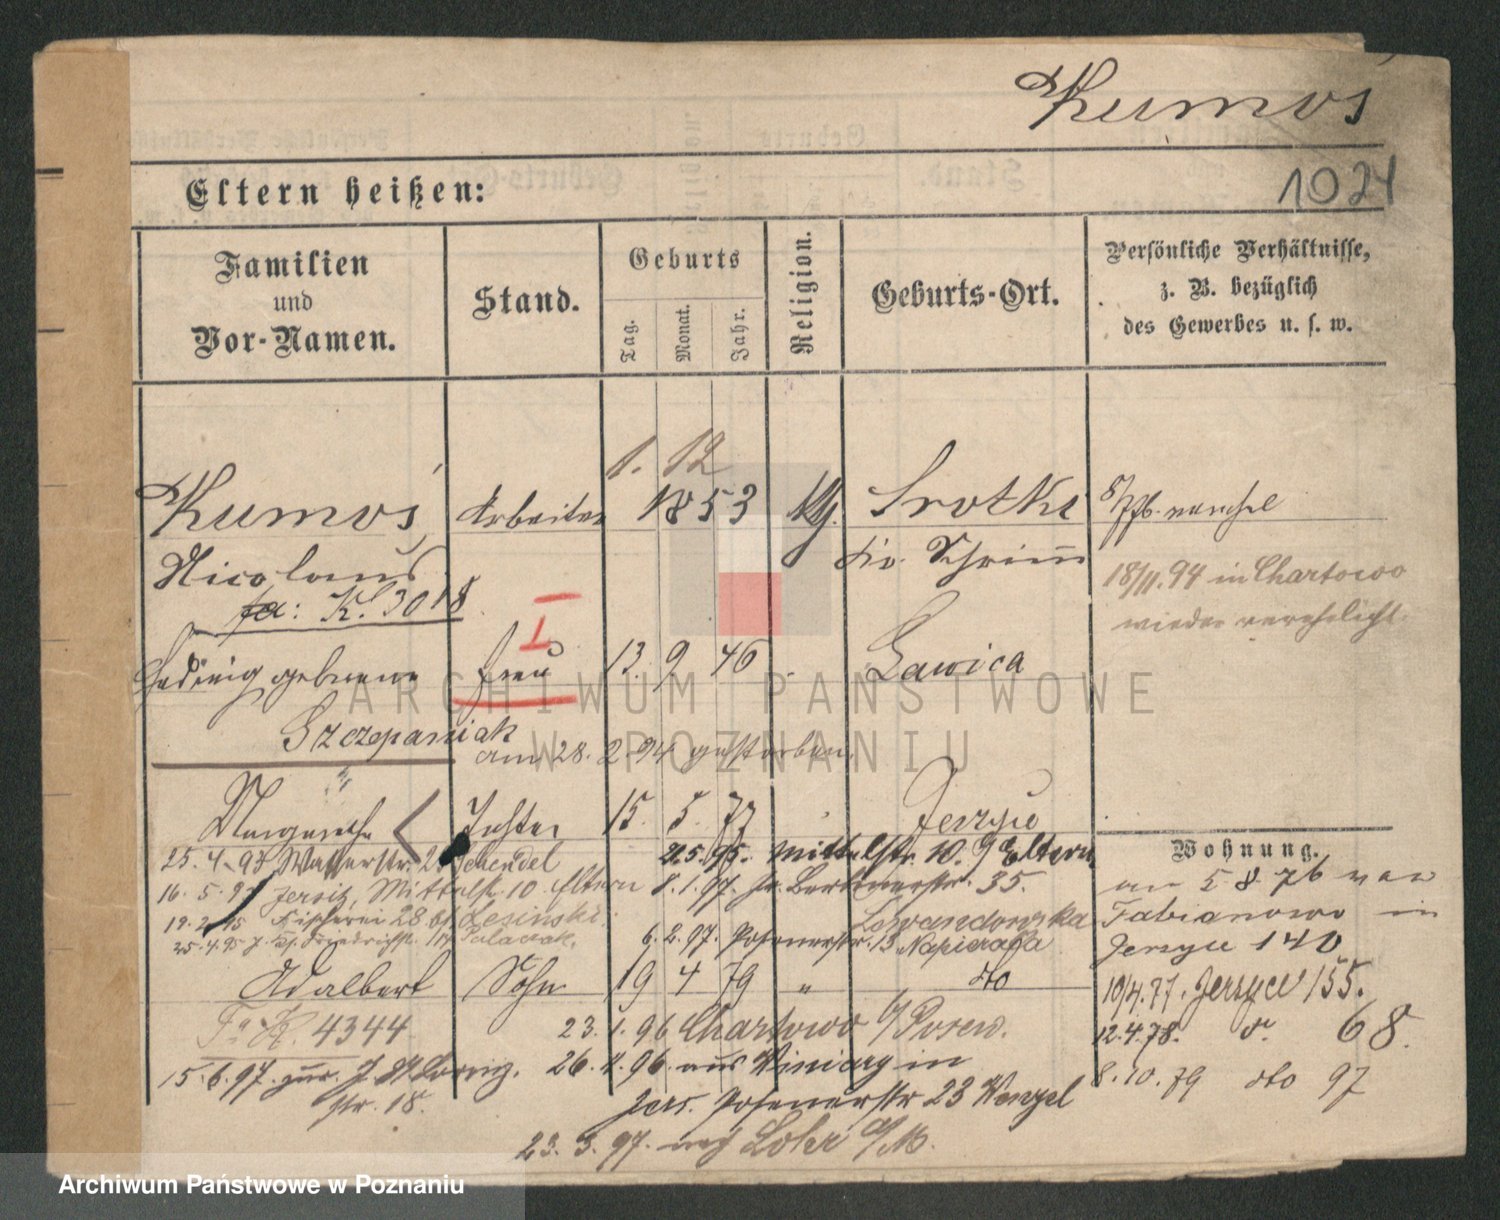 Kumoś
1024
Eltern heißen:
Familien und Vor-Namen.
Stand.
Geburts
Tag.
Monat.
Jahr.
Religion.
Geburts-Ort.
Persönliche Verhältnisse,
z. B. bezüglich
des Gewerbes u. s. w.
1. 12
Kumoś Arbeiter 1853 Srotki
Nicolaus Kr. Schrimm
18/11.94 in Chartowo
wieder verehelicht.
fa: K. 3018
I
Hedwig geborene Frau 13. 9. 46 Lawica
Szczepaniak
am 28. 2. 94 gestorben
Margarethe Tochter 15. 5. 77 Jerzyce
Wohnung.
25. 4. 95 Wallstr. Schendel
21.5.95. Mittelstr. 10. Eltern
16. 5. 97 Jersitz, Mittelstr. 10 Eltern 8. 1. 97. Berlinerstr. 35.
19. 2. 95 Fischerei 28 Lesinski Lewandowska
25. 4. 95 Friedrichstr. 6. 2. 97. Posenerstr. 13 Napierała
am 5 8 76 von
Fabianowo in
Jerzyce 140
Adalbert Sohn 19 4 79 " do
10/4.77. Jerzyce 155.
Fa K. 4344 23. 1. 96 Chartowo b/Posen.
12.4.78. do 68.
15. 6. 97. zur. 26. 96. aus Winiary in
8. 10. 79 dto 97
str. 18. Jers. Posenerstr 23 Wenzel
23. 3. 97. nach Lohr a/M.
ARCHIWUM PAŃSTWOWE
W POZNANIU
Archiwum Państwowe w Poznaniu